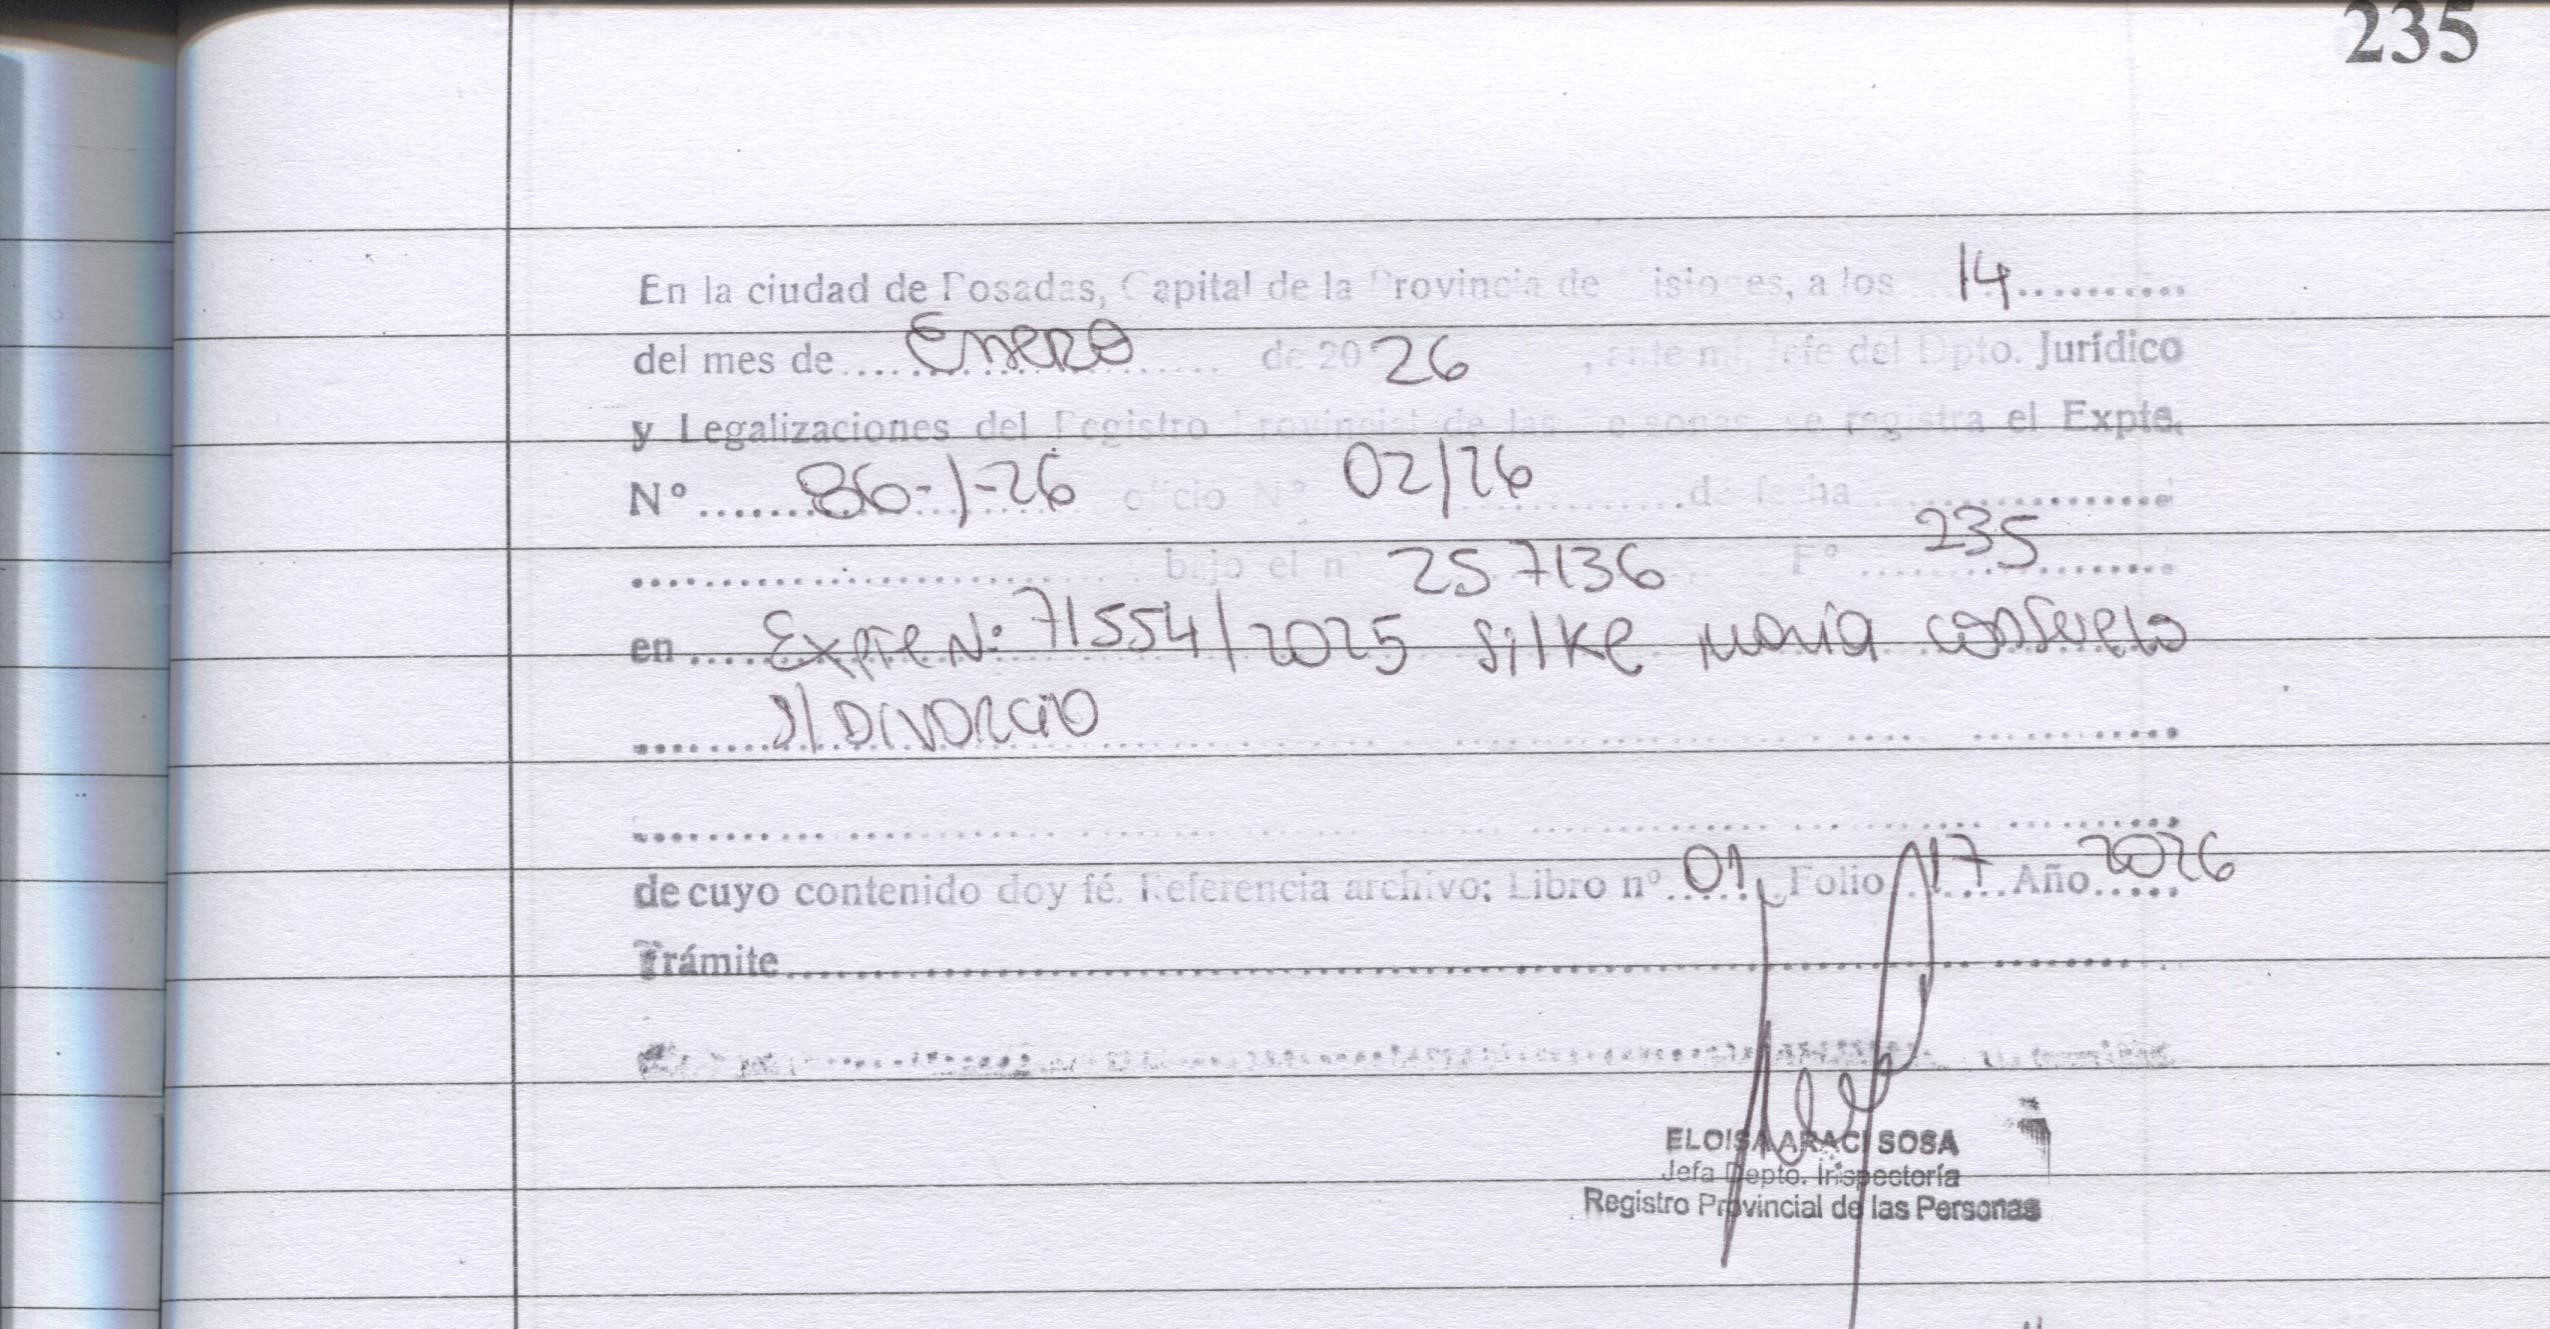 235
En la ciudad de Posadas, Capital de la Provincia de Misiones, a los 14
del mes de Enero de 20 26, ante mi Jefe del Dpto. Jurídico
y Legalizaciones del Registro Provincial de las Personas se registra el Expte.
Nº 86-1-26 oficio Nº 02/26 de fecha
bajo el nº 257136 Fº 235
en Expte Nº 71554/2025 Silke Maria Consuelo
s/ DIVORCIO
de cuyo contenido doy fé. Referencia archivo; Libro nº 01 Folio 17 Año 2026
Trámite
ELOISA ARACI SOSA
Jefa Depto. Inspectoría
Registro Provincial de las Personas